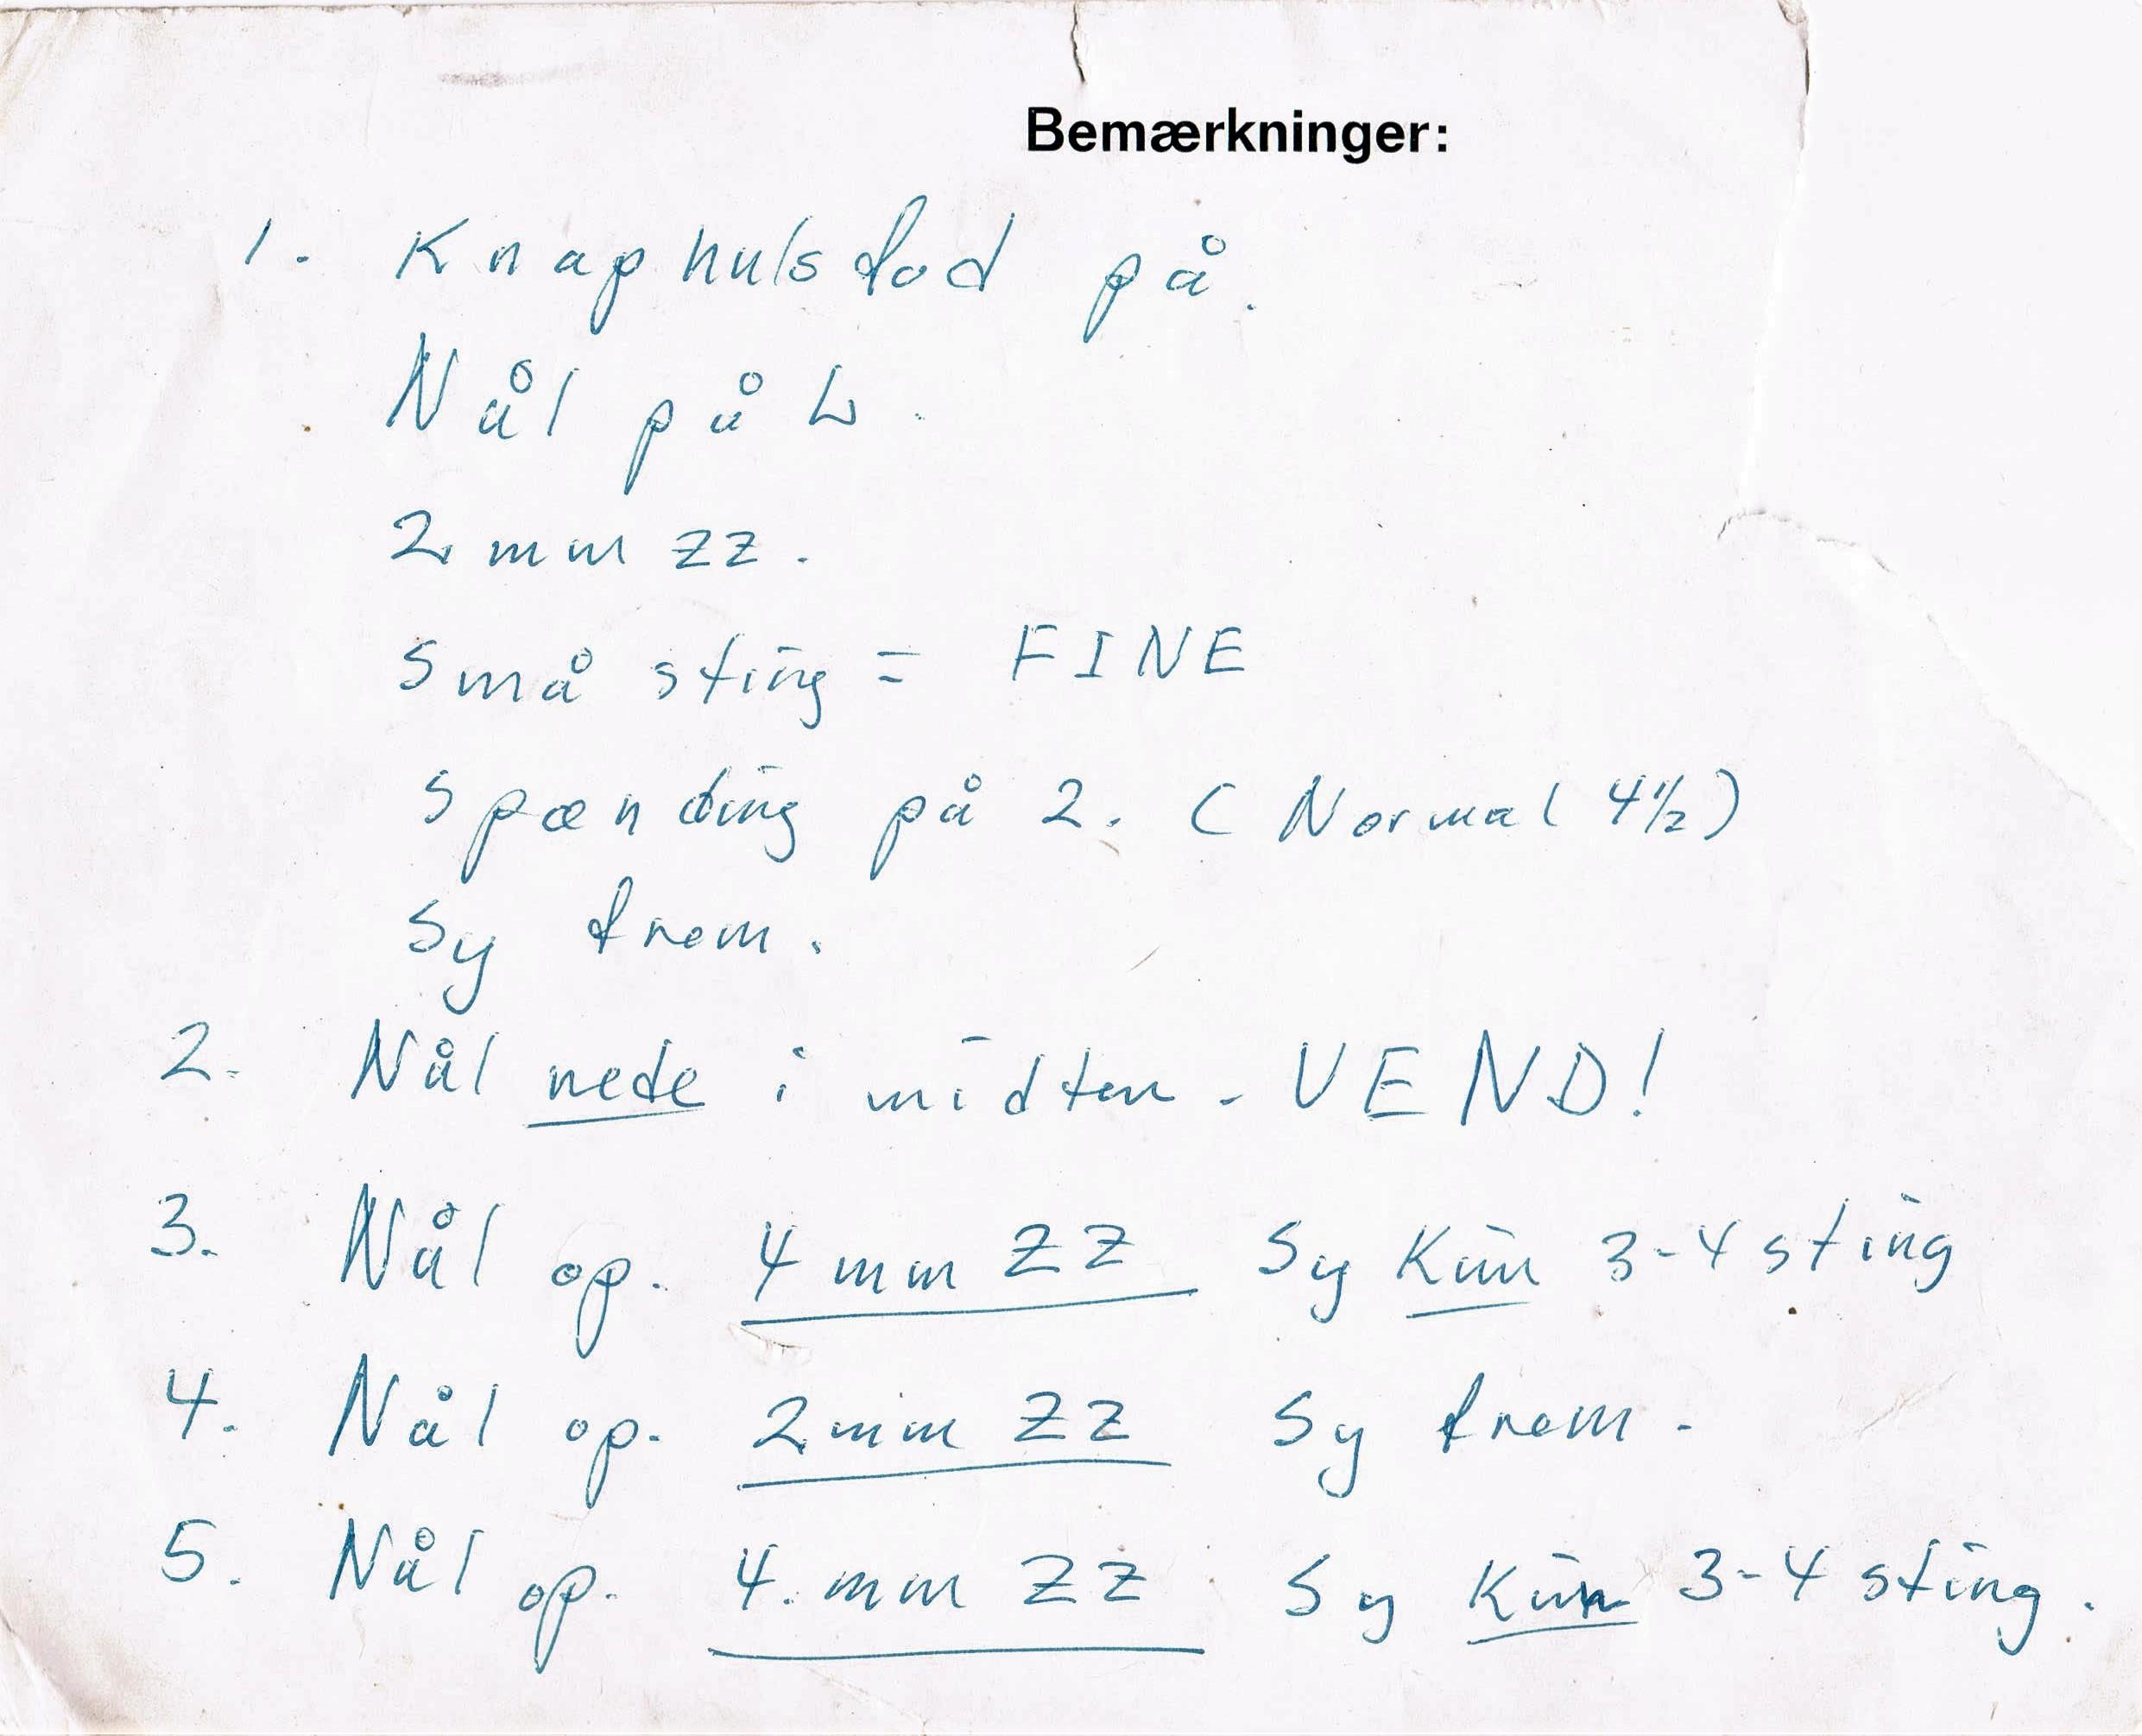 Bemærkninger:
1. Knaphulsfod på.
Nål på L.
2 mm zz.
små sting = FINE
spænding på 2. (Normal 4½)
sy frem.
2. Nål nede i midten - VEND!
3. Nål op. 4 mm ZZ Sy Kun 3-4 sting
4. Nål op. 2mm ZZ Sy frem.
5. Nål op. 4. mm ZZ Sy Kun 3-4 sting.